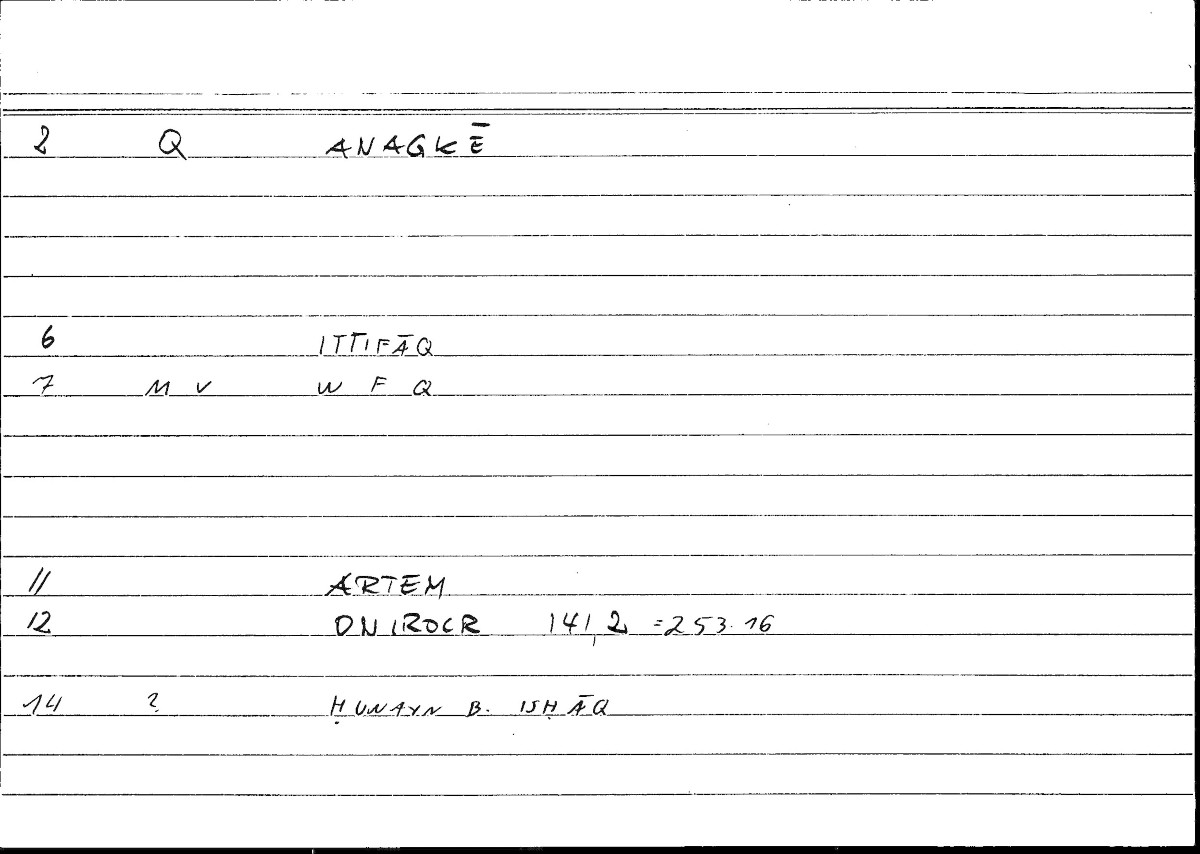 2 Q ANAGKĒ
6 ITTIFĀQ
7 M V W F Q
11 ARTEM
12 ONIROCR 141,2 =253.16
14 ? ḤUNAYN B. ISḤĀQ